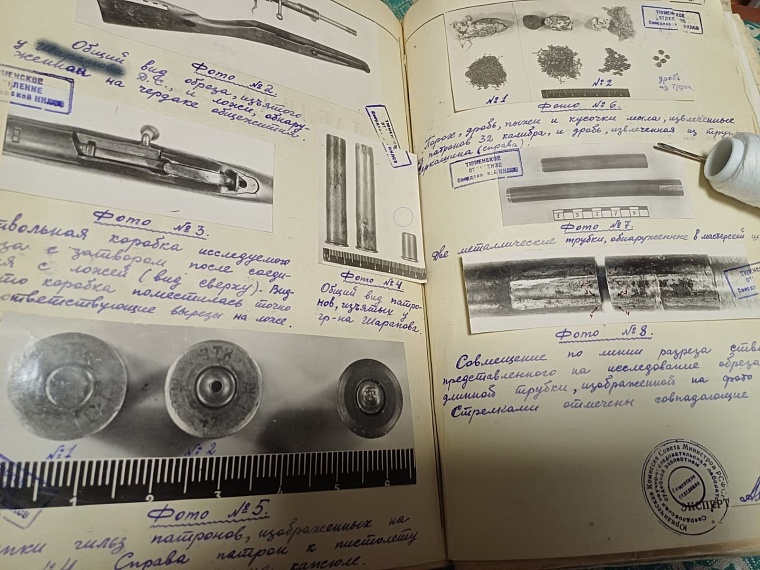 Фото №2.
Общий вид обреза, изъятого
у Д.С., и ложи, обнару-
женной на чердаке общежития.
ТЮМЕНСКОЕ
Фото №3.
ствольная коробка исследуемого
с затвором после соеди-
с ложей (вид сверху). Вид-
что коробка поместилась точно
соответствующие вырезы на ложе.
Фото №4.
Общий вид патро-
нов, изъятых у
гр-на Шарапова.
№1 №2
1 2 3 4 5 6
Фото №5.
гильз патронов, изображенных на
Справа патрон к пистолету
капсюле.
ТЮМЕНСКОЕ
№1 №2
дробь
из трупа
Фото №6.
Порох, дробь, пыжи и кусочки мыла, извлеченные
из патронов 32 калибра, и дробь, извлеченная из
(справа).
ТЮМЕНСКОЕ
Фото №7.
Две металлические трубки, обнаруженные в мастерской
Фото №8.
Совмещение по линии разреза
представленного на исследование обреза
длинной трубки, изображенной на фото
Стрелками отмечены совпадающие
Юридическая Комиссия Совета Министров РСФСР
ЭКСПЕРТ